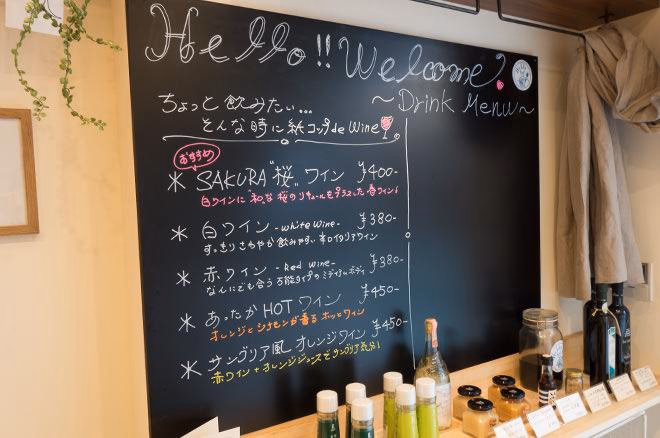 Hello!! Welcome
~Drink Menu~
ちょっと飲みたい...
そんな時に紙コップde Wine
おすすめ
* SAKURA "桜" ワイン ¥400-
白ワインに"和"な桜のリキュールをプラスした春ワイン!
* 白ワイン -white wine- ¥380-
すっきりさわやか飲みやすい辛口イタリアワイン
* 赤ワイン -Red wine- ¥380-
なんにでも合う万能タイプのミディアムボディ
* あったかHOTワイン ¥450-
オレンジとシナモンが香るホットワイン
* サングリア風オレンジワイン ¥450-
赤ワイン+オレンジジュースでサングリア気分!